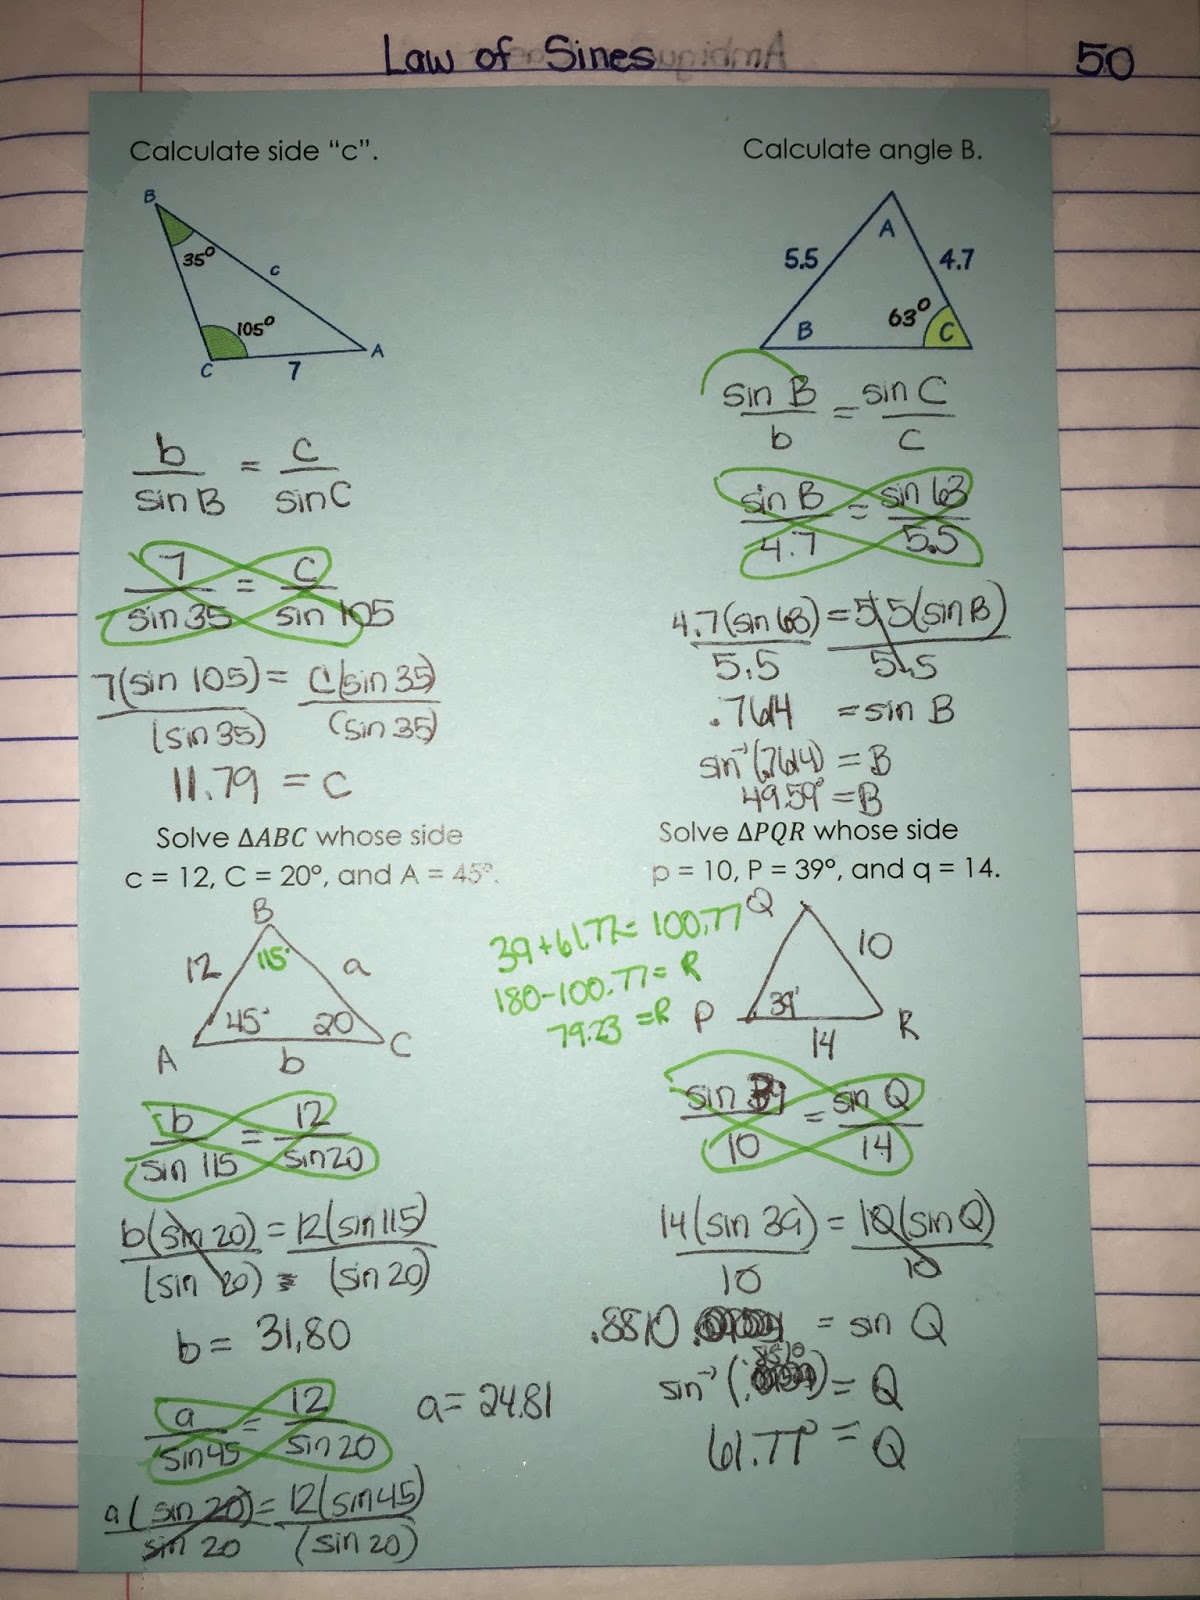 Law of Sines
50
Calculate side “c”.
B
35°
c
105°
C
7
A
b/sin B = c/sin C
7/sin 35 = c/sin 105
7(sin 105)/(sin 35) = c(sin 35)/(sin 35)
11.79 = c
Calculate angle B.
A
5.5
4.7
B
63°
C
sin B/b = sin C/c
sin B/4.7 = sin 63/5.5
4.7(sin 63)/5.5 = 5.5(sin B)/5.5
.7614 = sin B
sin⁻¹(.7614) = B
49.59° = B
Solve ΔABC whose side
c = 12, C = 20°, and A = 45°.
B
115°
12
a
45°
20
A
b
C
b/sin 115 = 12/sin 20
b(sin 20)/(sin 20) = 12(sin 115)/(sin 20)
b = 31.80
a/sin 45 = 12/sin 20
a = 24.81
a(sin 20)/sin 20 = 12(sin 45)/(sin 20)
Solve ΔPQR whose side
p = 10, P = 39°, and q = 14.
39 + 61.77 = 100.77
180 - 100.77 = R
79.23 = R
Q
10
P
39°
R
14
sin 39/10 = sin Q/14
14(sin 39)/10 = 10(sin Q)/10
.8810 = sin Q
sin⁻¹(.8810) = Q
61.77° = Q